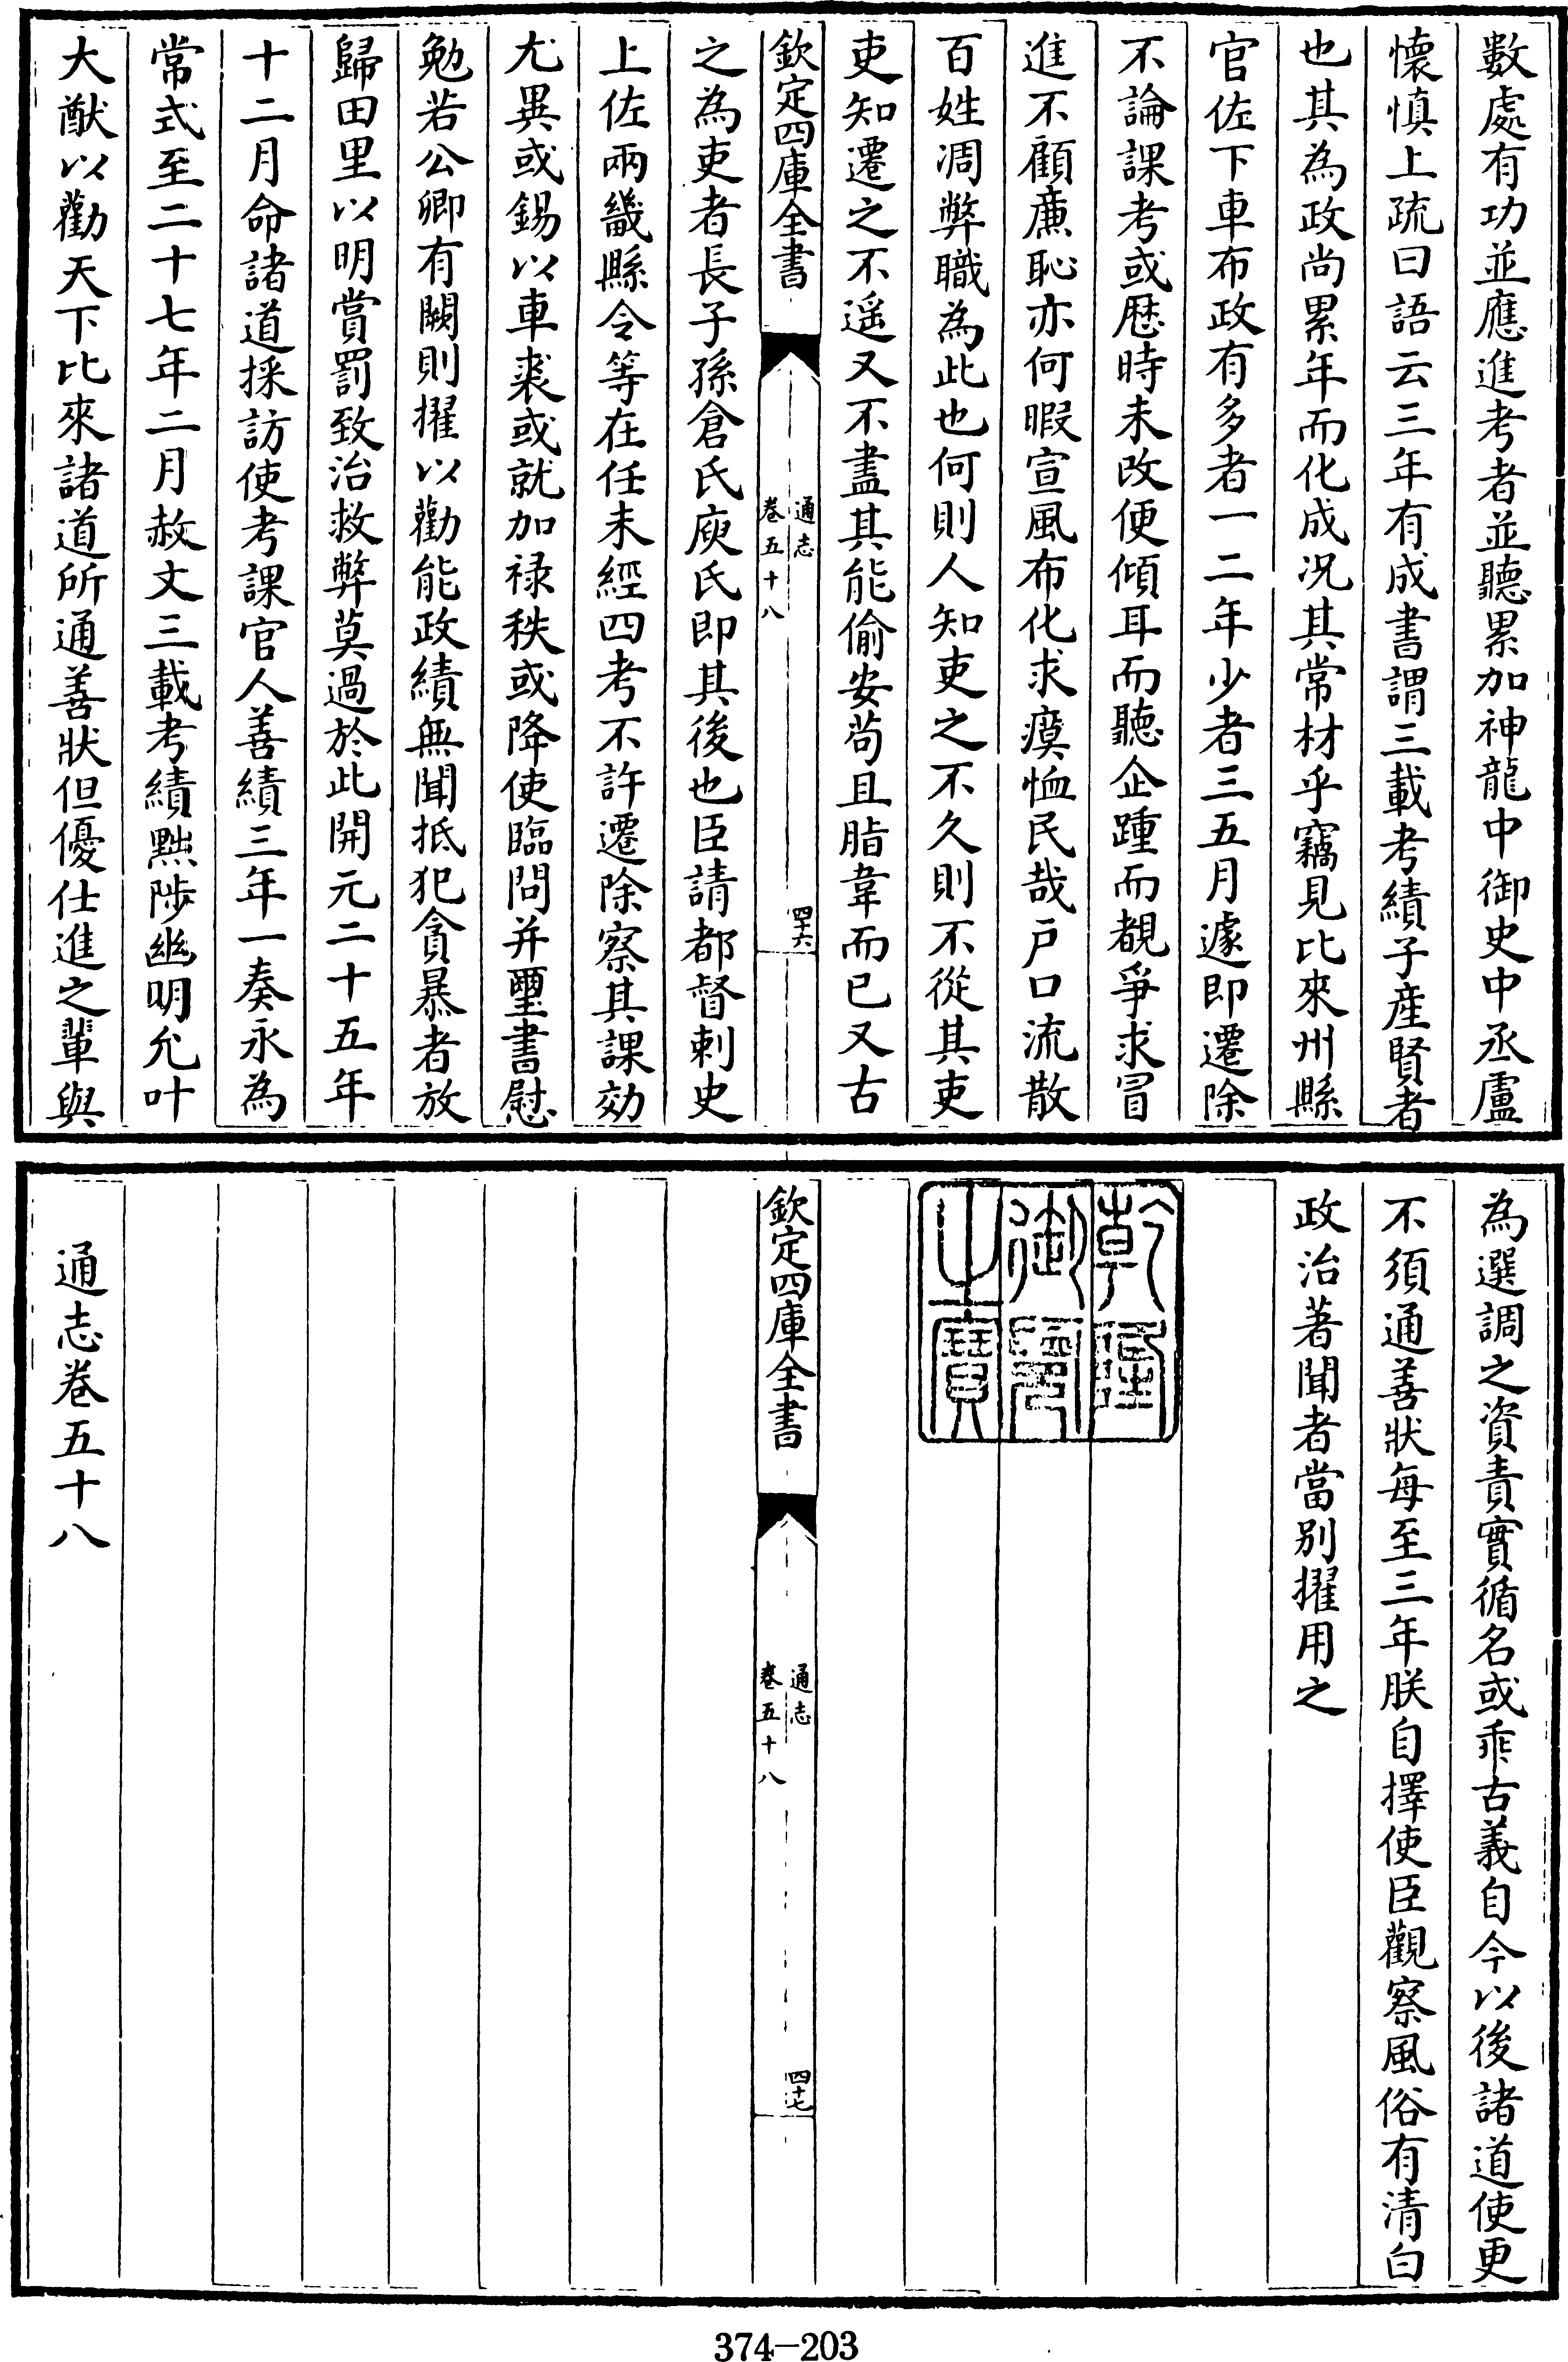 數處有功並應進考者並聽累加神龍中御史中丞盧
懷慎上疏曰語云三年有成書謂三載考績子産賢者
也其為政尚累年而化成况其常材乎竊見比來州縣
官佐下車布政有多者一二年少者三五月遽即遷除
不論課考或厯時未改便傾耳而聽企踵而覩爭求冒
進不顧廉恥亦何暇宣風布化求瘼恤民哉户口流散
百姓凋弊職為此也何則人知吏之不久則不從其吏
吏知遷之不遥又不盡其能偷安苟且脂韋而已又古
欽定四庫全書
通志
卷五十八
四十六
之為吏者長子孫倉氏庾氏即其後也臣請都督刺史
上佐兩畿縣令等在任未經四考不許遷除察其課効
尤異或錫以車裘或就加禄秩或降使臨問并璽書慰
勉若公卿有闕則擢以勸能政績無聞抵犯貪暴者放
歸田里以明賞罰致治救弊莫過於此開元二十五年
十二月命諸道採訪使考課官人善績三年一奏永為
常式至二十七年二月赦文三載考績黜陟幽明允叶
大猷以勸天下比來諸道所通善狀但優仕進之輩與
為選調之資責實循名或乖古義自今以後諸道使更
不須通善狀每至三年朕自擇使臣觀察風俗有清白
政治著聞者當别擢用之
乾隆
御覽
之寶
欽定四庫全書
通志
卷五十八
四十七
通志卷五十八
374-203